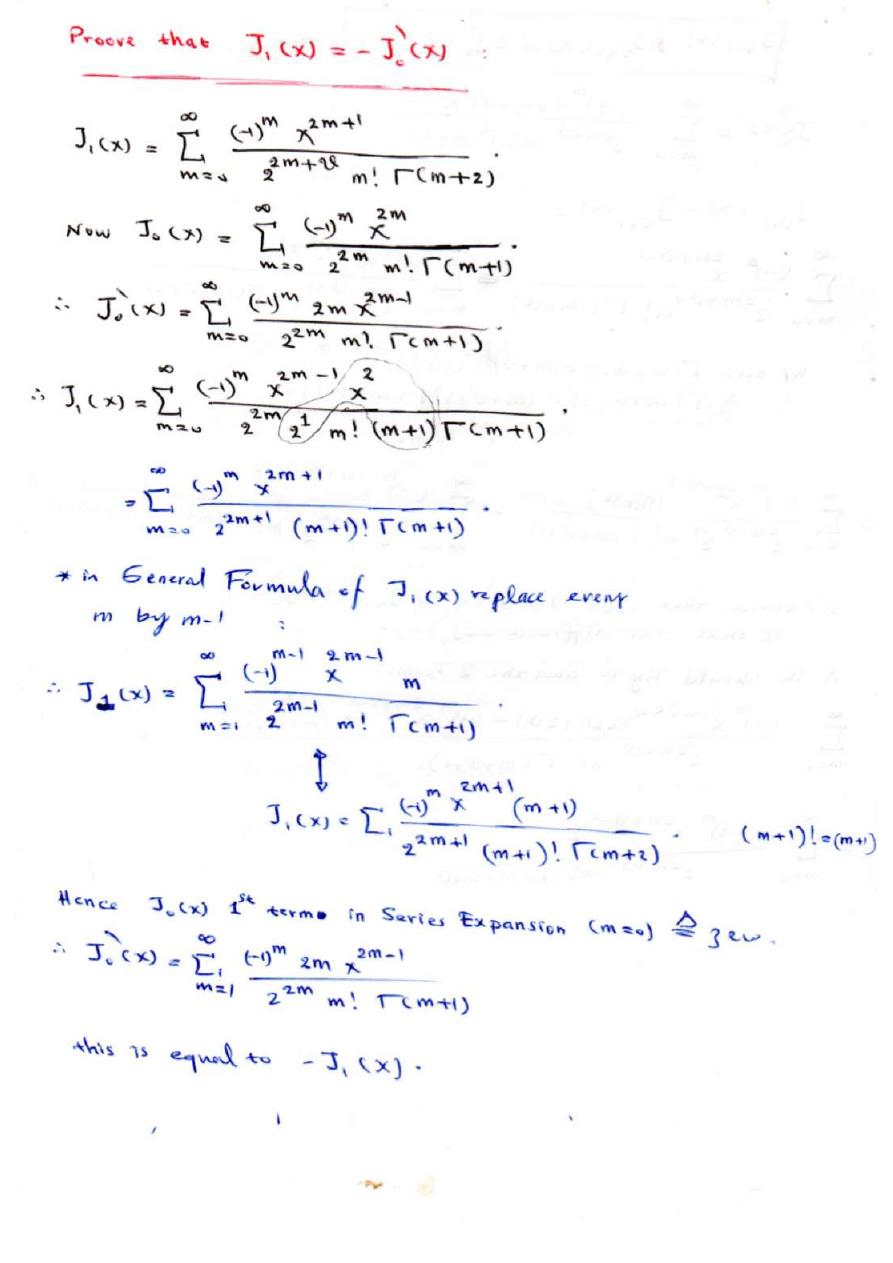 Proove that J₁(x) = - J₀`(x) :
J₁(x) = Σ_{m=0}^{∞} (-1)^m x^{2m+1} / 2^{2m+ν} m! Γ(m+2) .
Now J₀(x) = Σ_{m=0}^{∞} (-1)^m x^{2m} / 2^{2m} m! Γ(m+1) .
∴ J₀`(x) = Σ_{m=0}^{∞} (-1)^m 2m x^{2m-1} / 2^{2m} m! Γ(m+1) .
∴ J₁(x) = Σ_{m=0}^{∞} (-1)^m x^{2m-1} x^2 / 2^{2m} 2^1 m! (m+1) Γ(m+1) .
= Σ_{m=0}^{∞} (-1)^m x^{2m+1} / 2^{2m+1} (m+1)! Γ(m+1) .
* in General Formula of J₁(x) replace every
m by m-1 :
∴ J₁(x) = Σ_{m=1}^{∞} (-1)^{m-1} x^{2m-1} m / 2^{2m-1} m! Γ(m+1) .
↕
J₁(x) = Σ (-1)^m x^{2m+1} (m+1) / 2^{2m+1} (m+1)! Γ(m+2) . (m+1)! = (m+1)
Hence J₀(x) 1st terms in Series Expansion (m=0) ≙ zero.
∴ J₀`(x) = Σ_{m=1}^{∞} (-1)^m 2m x^{2m-1} / 2^{2m} m! Γ(m+1)
this is equal to - J₁(x) .